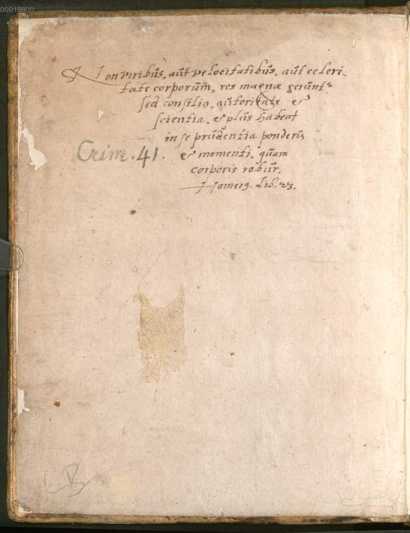 00019800
Non viribus, aut velocitatibus, aut celeri-
tate corporum, res magnæ gerunt~
sed consilio, autoritate et
scientia, et plus habeat
in se prudentia ponderis
Crim. 41.
et momenti, quam
corporis robur.
Homerg. Lib. 23.